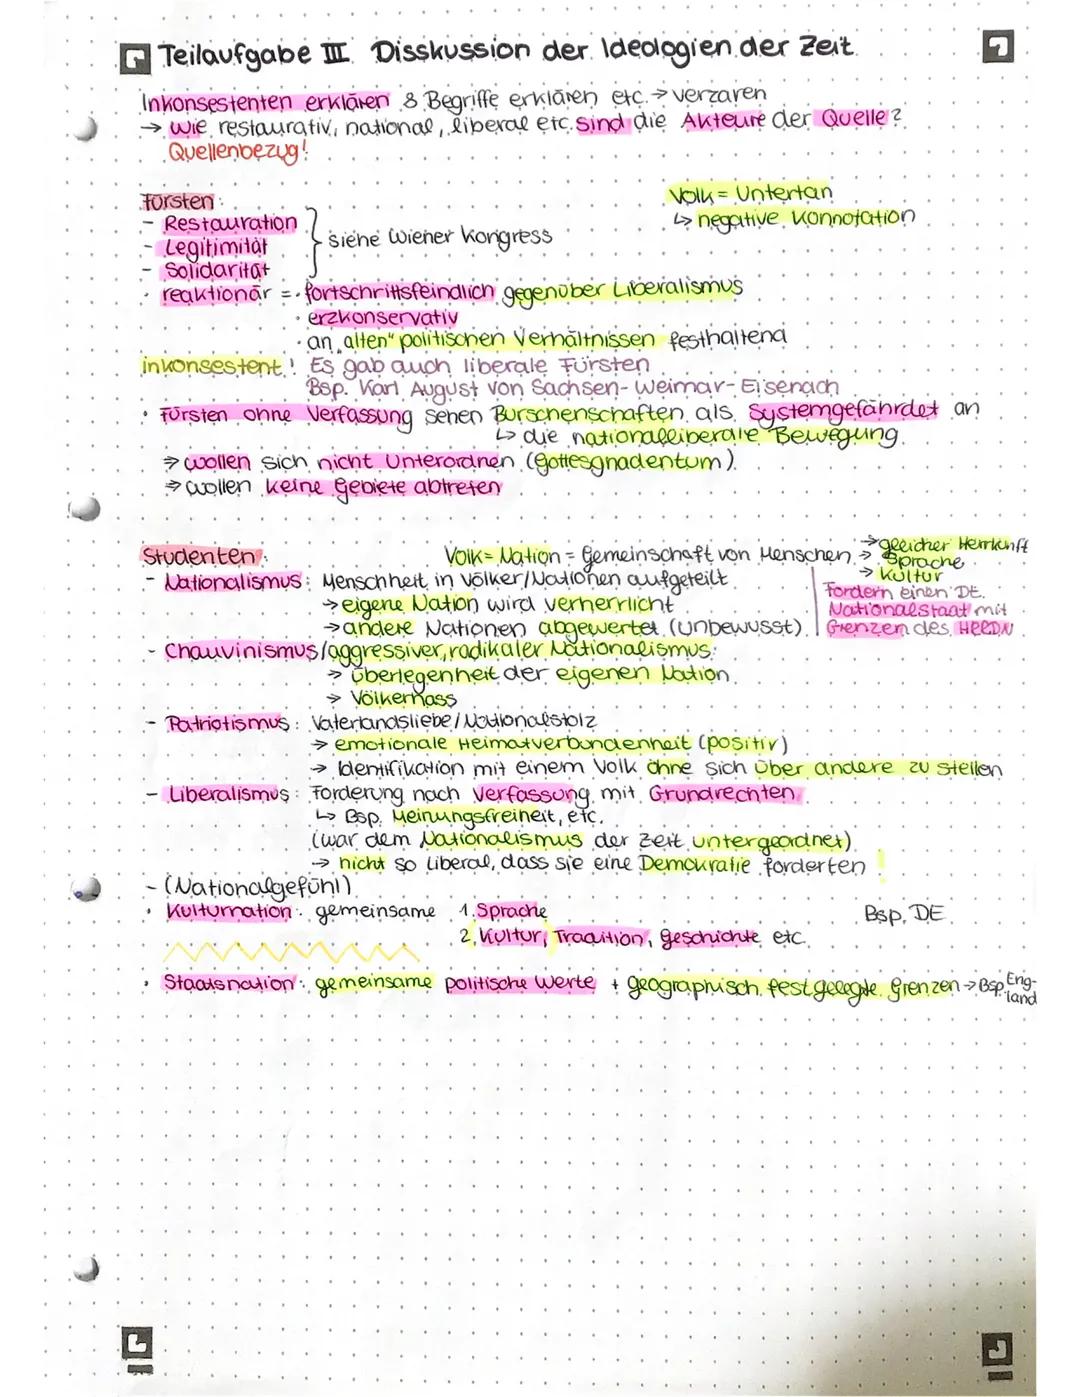 Teilaufgabe III Disskussion der Ideologien der Zeit
Inkonsestenten erklären & Begriffe erklären etc. → verzaren
→ wie restaurativ, national, liberal etc. sind die Akteure der Quelle?
Quellenbezug!
Fürsten:
Volk = Untertan
- Restauration
↳ negative Konnotation
- Legitimität
siehe Wiener Kongress
- Solidarität
· reaktionär = · fortschrittsfeindlich gegenüber Liberalismus
· erzkonservativ
· an „alten" politischen Verhältnissen festhaltend
inkonsestent! Es gab auch liberale Fürsten
Bsp. Karl August von Sachsen-Weimar-Eisenach
· Fürsten ohne Verfassung sehen Burschenschaften als Systemgefährdet an
↳ die nationalliberale Bewegung
⇒ wollen sich nicht Unterordnen (Gottesgnadentum)
⇒ wollen keine Gebiete abtreten
Studenten:
Volk = Nation = Gemeinschaft von Menschen → gleicher Herrkunft
→ Sprache
→ Kultur
- Nationalismus: Menschheit in Völker/Nationen aufgeteilt
→ eigene Nation wird verherrlicht
→ andere Nationen abgewertet (unbewusst)
Fordern einen DE.
Nationalstaat mit
Grenzen des HRRDN
- Chauvinismus/aggressiver, radikaler Nationalismus:
→ Überlegenheit der eigenen Nation
→ Völkerhass
- Patriotismus: Vaterlandsliebe/Nationalstolz
→ emotionale Heimatverbundenheit (positiv)
→ Identifikation mit einem Volk ohne sich über andere zu stellen
- Liberalismus: Forderung nach Verfassung mit Grundrechten
↳ Bsp. Meinungsfreiheit, etc.
(war dem Nationalismus der Zeit untergeordnet)
→ nicht so liberal, dass sie eine Demokratie forderten!
- (Nationalgefühl)
· Kulturnation: gemeinsame 1. Sprache
Bsp. DE
2. Kultur, Tradition, Geschichte etc.
· Staatsnation: gemeinsame politische Werte + geographisch festgelegte Grenzen → Bsp. Eng-
land